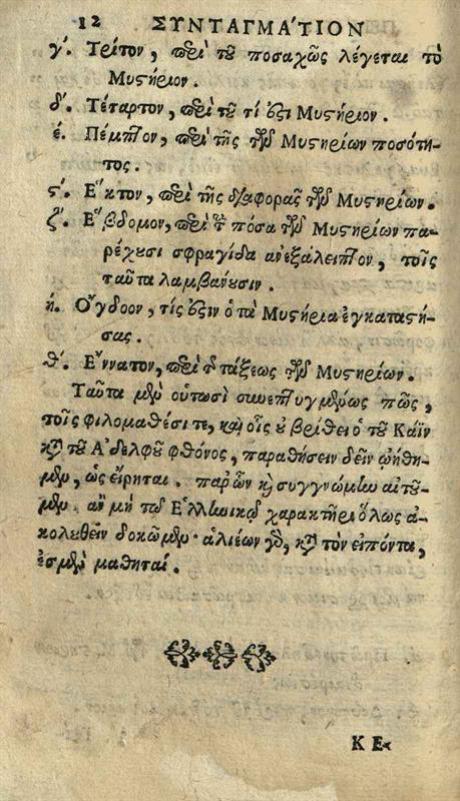 12 ΣΥΝΤΑΓΜΑ'ΤΙΟΝ
γ'. Τρίτον, περὶ τοῦ ποσαχῶς λέγεται τὸ
Μυστήριον.
δ'. Τέταρτον, περὶ τοῦ τί ἐστι Μυστήριον.
έ. Πέμπτον, περὶ τῆς τῶν Μυστηρίων ποσότη-
τος.
ς'. Ε῞κτον, περὶ τῆς διαφορᾶς τῶν Μυστηρίων.
ζ'. Ε῞βδομον, περὶ τοῦ πόσα τῶν Μυστηρίων πα-
ρέχουσι σφραγίδα ἀνεξάλειπτον, τοῖς
ταῦτα λαμβάνουσιν.
ή. Ο῎γδοον, τίς ἐστιν ὁ τὰ Μυστήρια ἐγκαταστή-
σας.
θ'. Ε῎ννατον, περὶ τῆς τάξεως τῶν Μυστηρίων.
Ταῦτα μὲν οὑτωσὶ συνεπτυγμένως πῶς,
τοῖς φιλομαθέσι τε, καὶ οἷς οὐ βρίθει ὁ τοῦ Κάϊν
κατὰ τοῦ Α᾿δελφοῦ φθόνος, παραθήσειν δεῖν ᾠήθη-
μεν, ὡς εἴρηται. παρ' ὧν καὶ συγγνώμην αἰτοῦ-
μεν. ἂν μὴ τῷ Ε῾λληνικῷ χαρακτῆρι ὅλως ἀ-
κολουθεῖν δοκῶμεν· ἁλιέων γὰρ, κατὰ τὸν εἰπόντα,
ἐσμὲν μαθηταί.
ΚΕ-